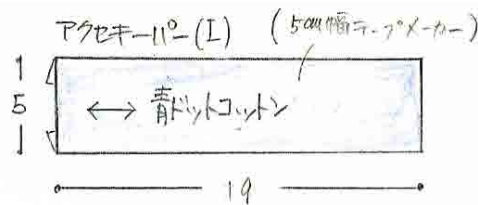 アクセキーパー(I) (5cm幅テープメーカー)
1
5
1
青ドットコットン
19